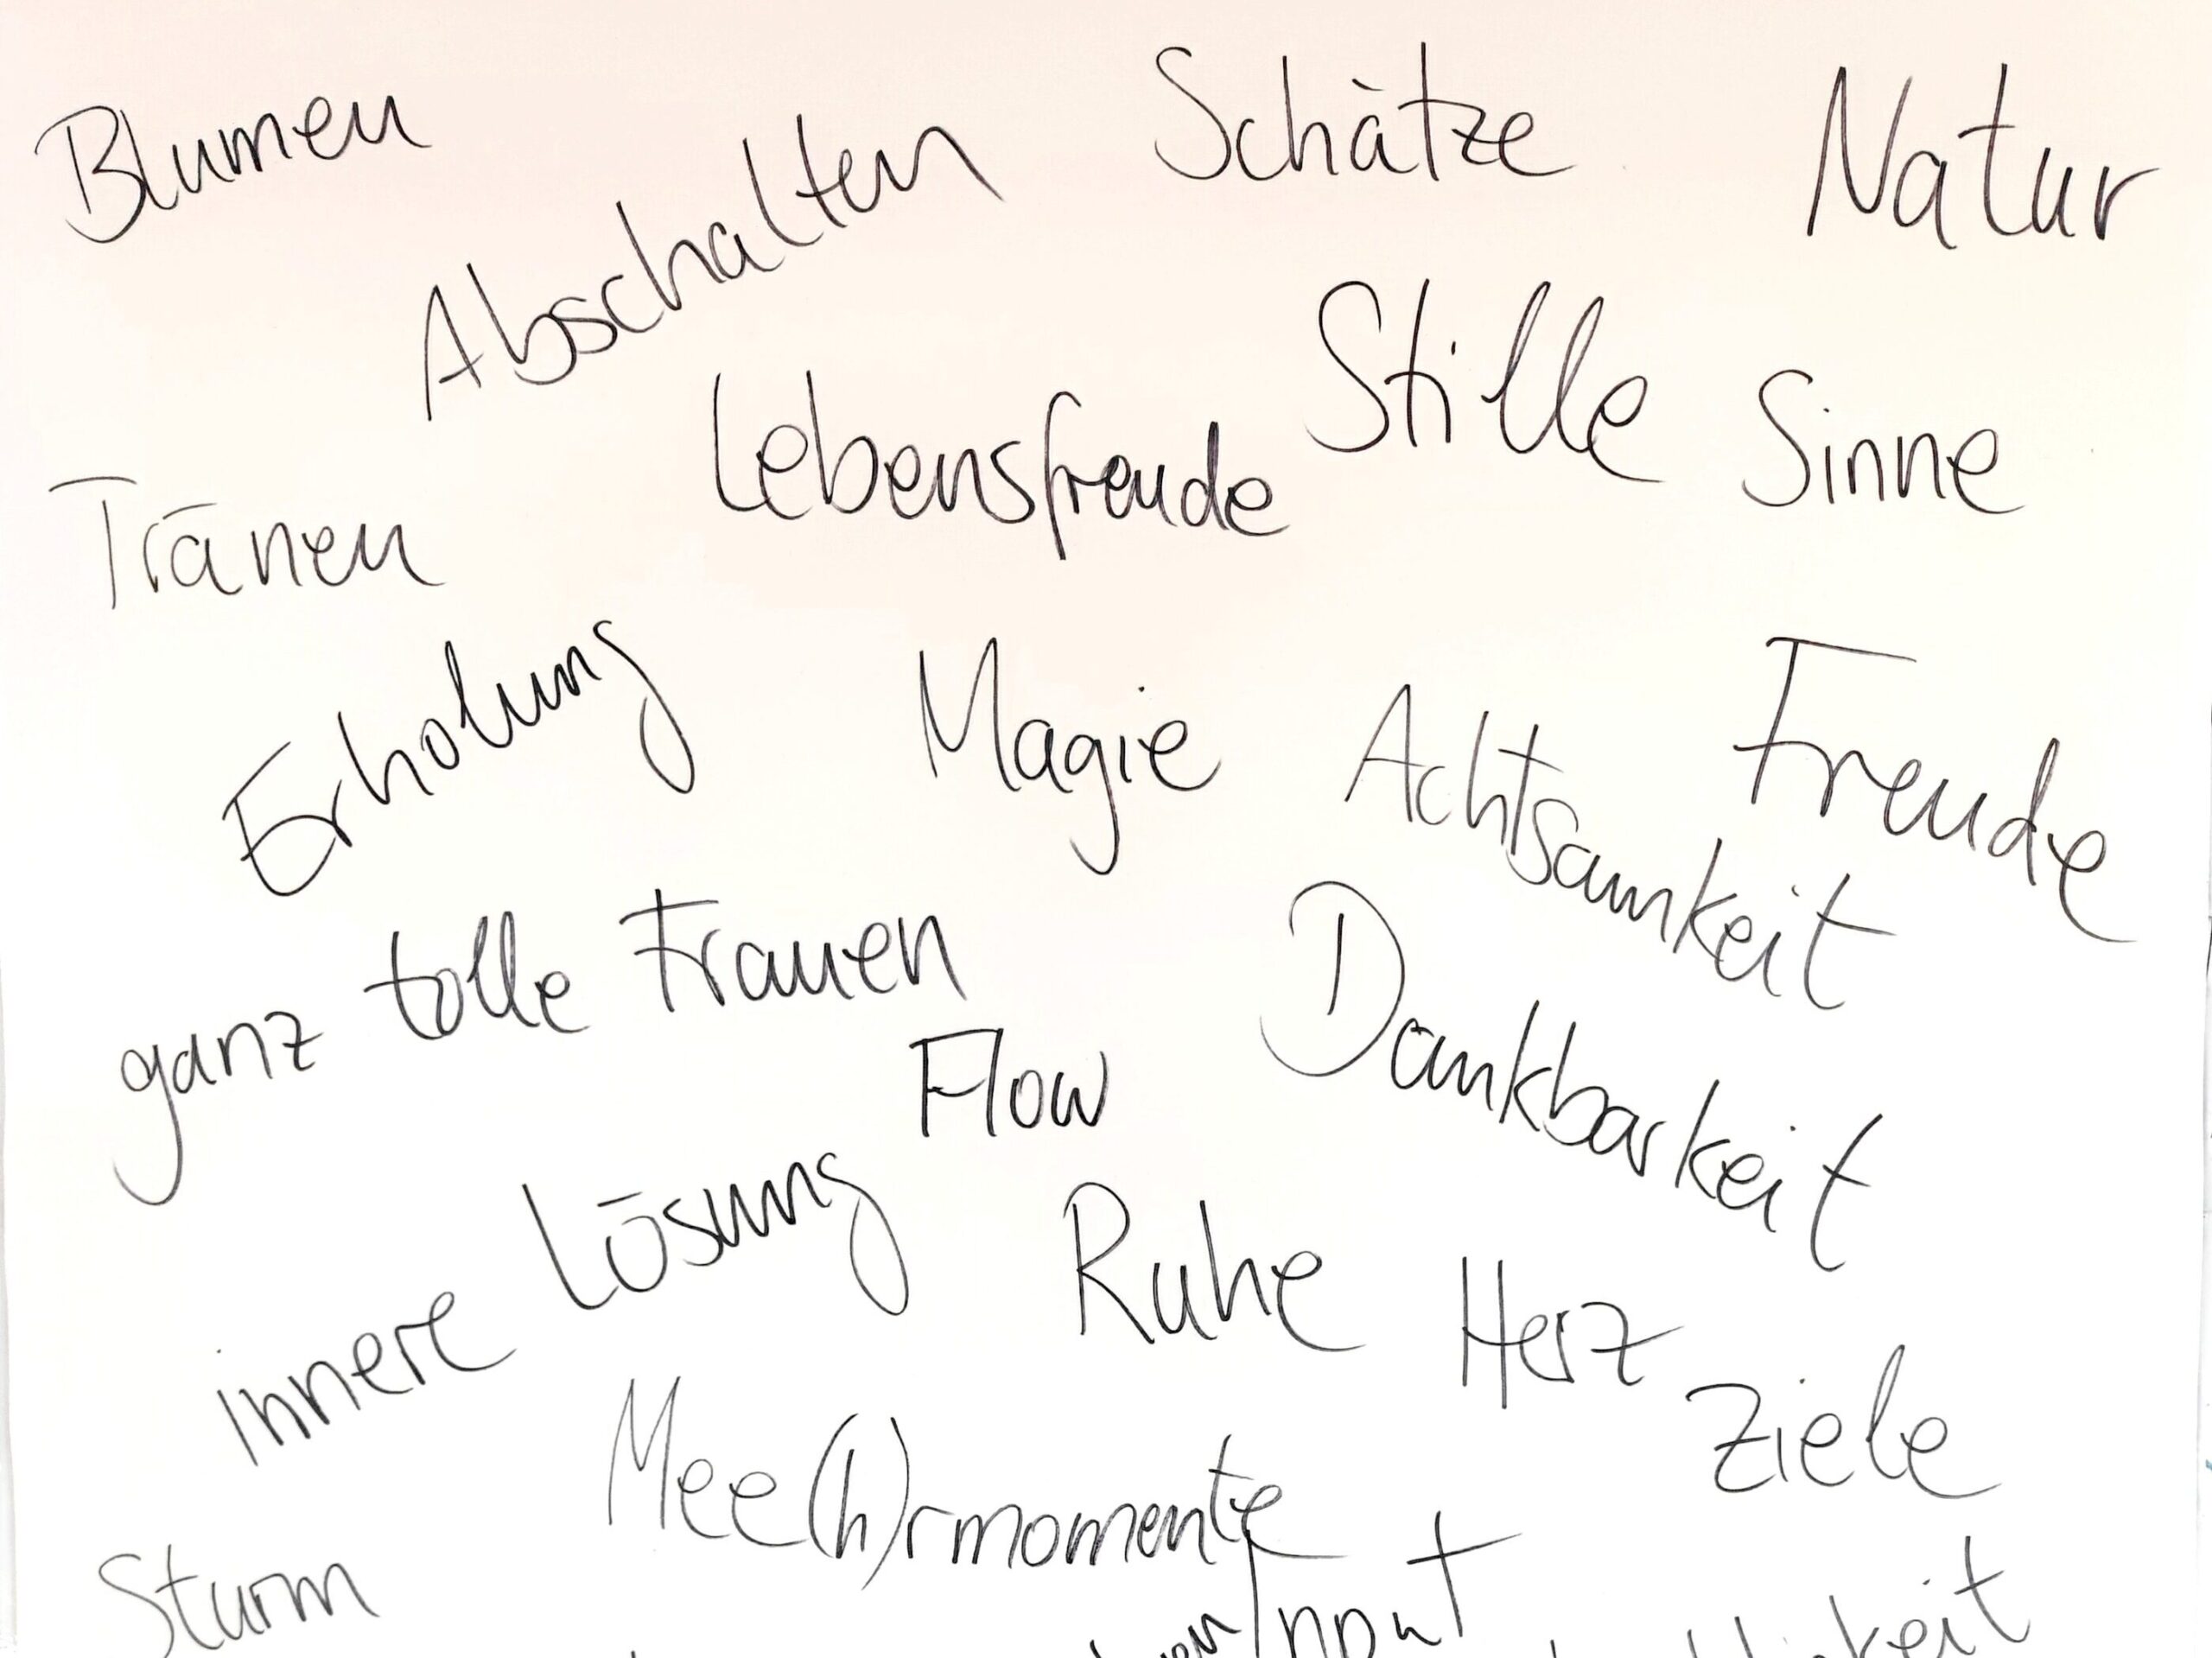 Blumen
Abschalten
Schätze
Natur
Lebensfreude
Stille
Sinne
Tränen
Erholung
Magie
Achtsamkeit
Freude
ganz tolle Frauen
Flow
Dankbarkeit
innere Lösung
Ruhe
Herz
Ziele
Mee(h)rmomente
Sturm
Input